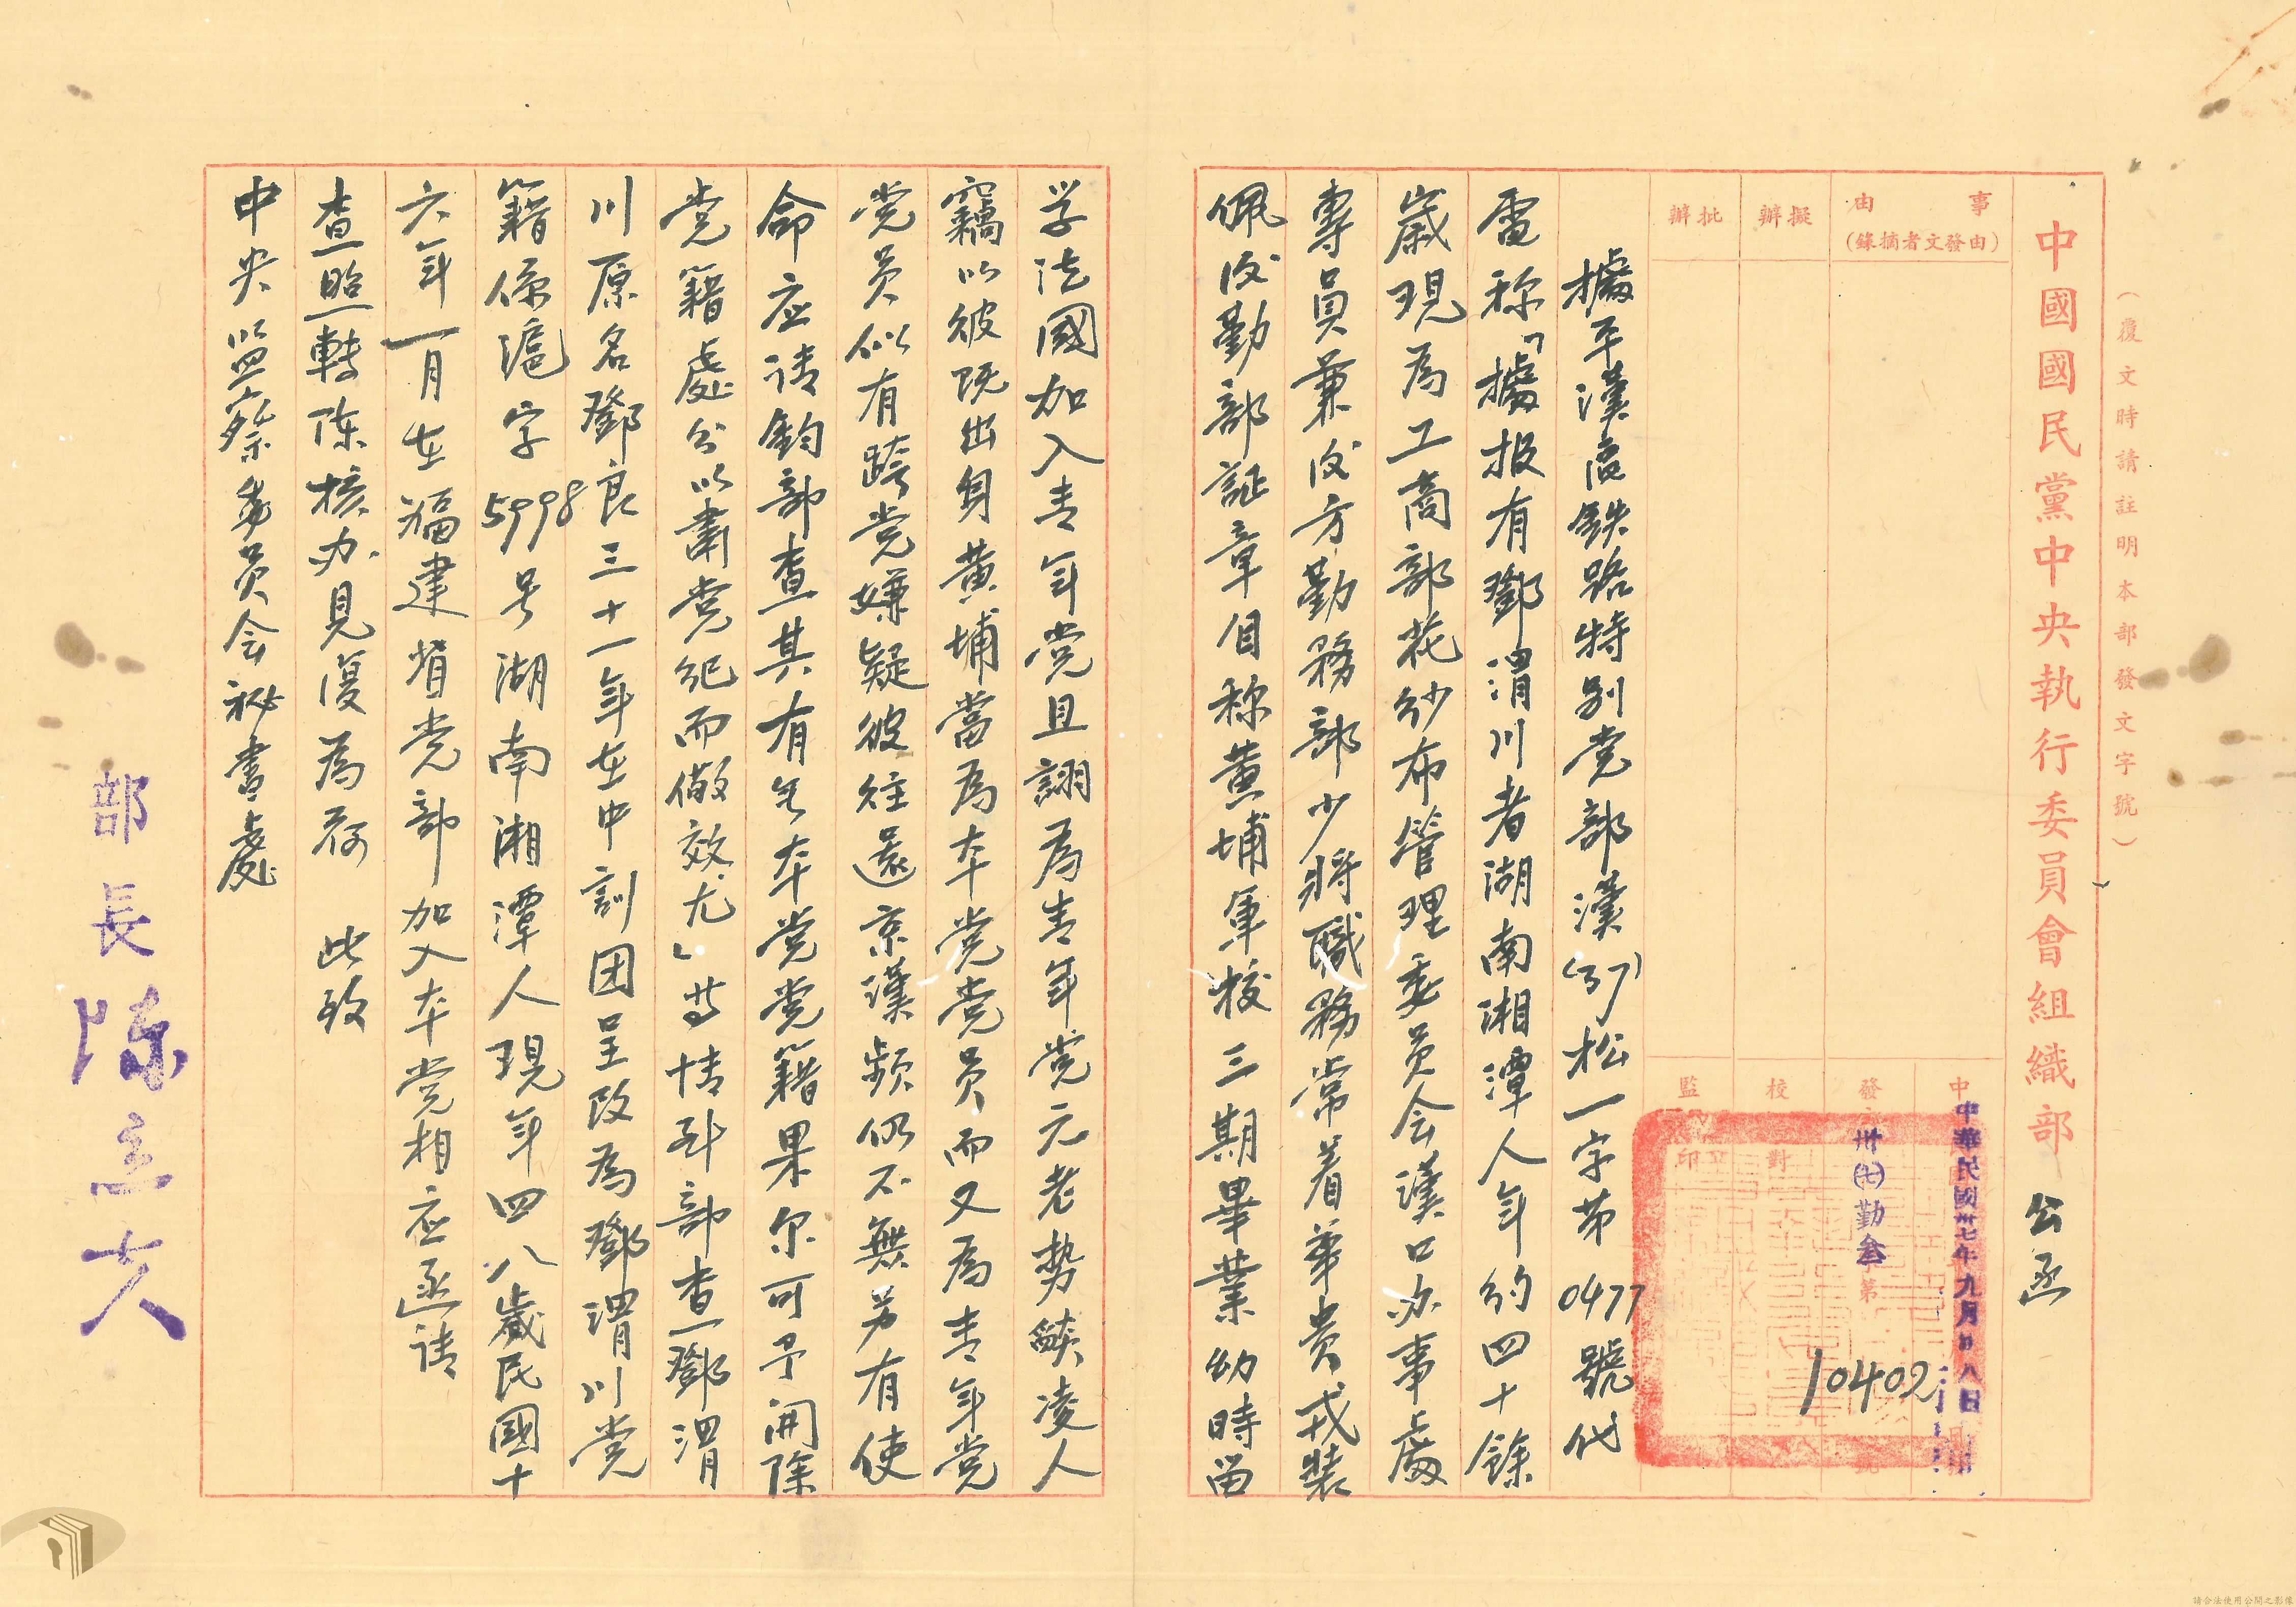 (復文時請註明本部發文字號)
中國國民黨中央執行委員會組織部 公函
事由
(由發文者摘錄)
擬辦
批辦
中華民國卅七年九月廿八日
發
卅(七)勤
字第
10402
號
校對
監印
據平漢區鉄路特别党部漢(37)松一字第0477號代
電称「據报有鄧渭川者湖南湘潭人年約四十餘
歲現為工商部花纱布管理委员会漢口办事處
專員兼后方勤務部少將職務常着華贵戎装
佩后勤部証章自称黄埔军校三期畢業幼時留
学法國加入青年党且詡為青年党元老势燄凌人
竊以彼既出身黄埔當為本党党员而又為青年党
党员似有跨党嫌疑彼往還京漢频仍不無另有使
命应请鈞部查其有无本党党籍果尔可予開除
党籍處分以肅党纪而儆效尤」等情到部查鄧渭
川原名鄧良三十一年在中訓团呈改為鄧渭川党
籍係滬字5998号湖南湘潭人現年四八歲民國十
六年一月在福建省党部加入本党相应函请
查照轉陈核办見復為荷 此致
中央监察委员会秘書處
部長陳立夫
請合法使用公開之影像